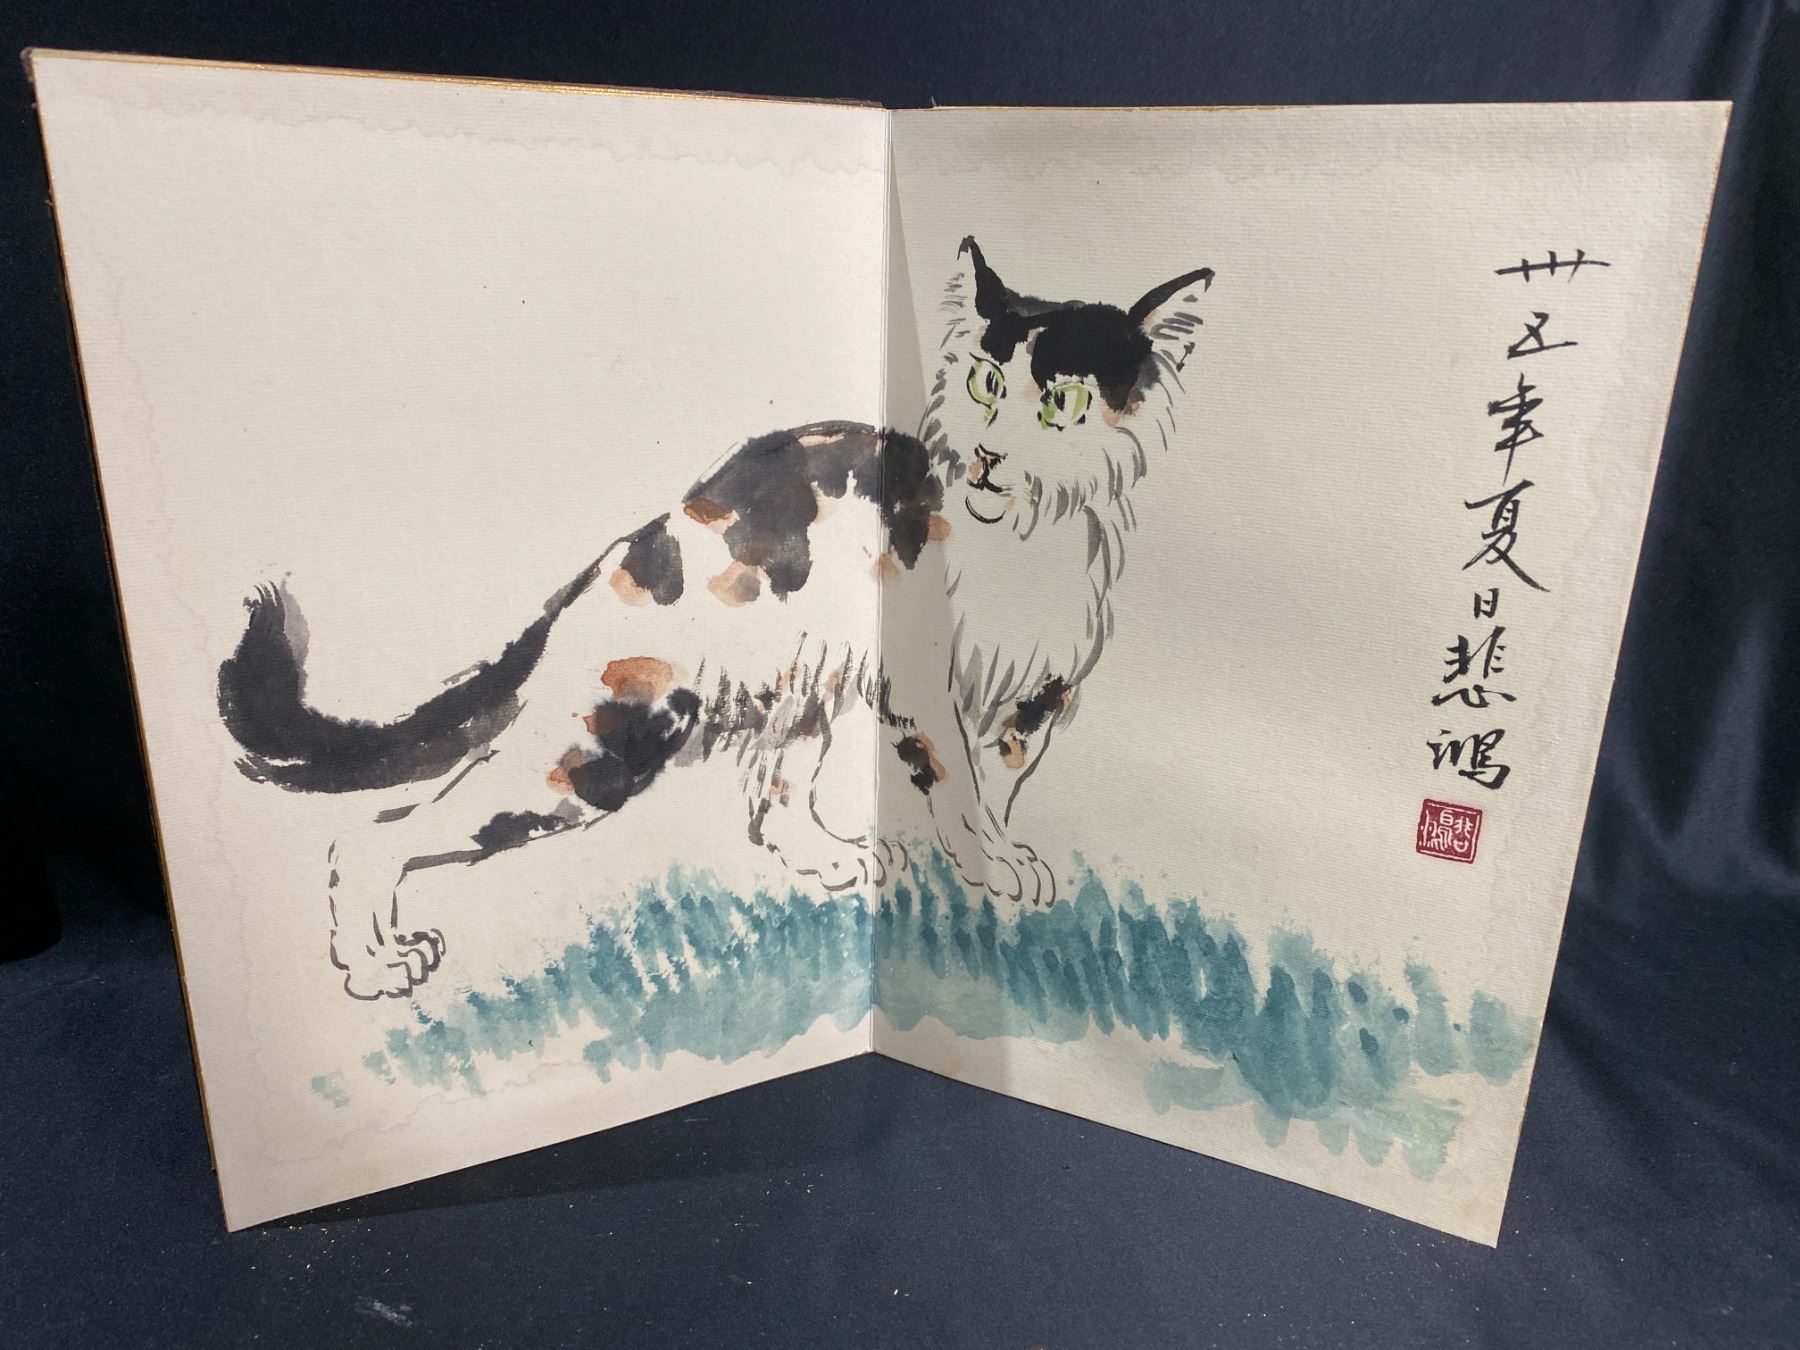 卅五年夏日悲鴻
悲鴻